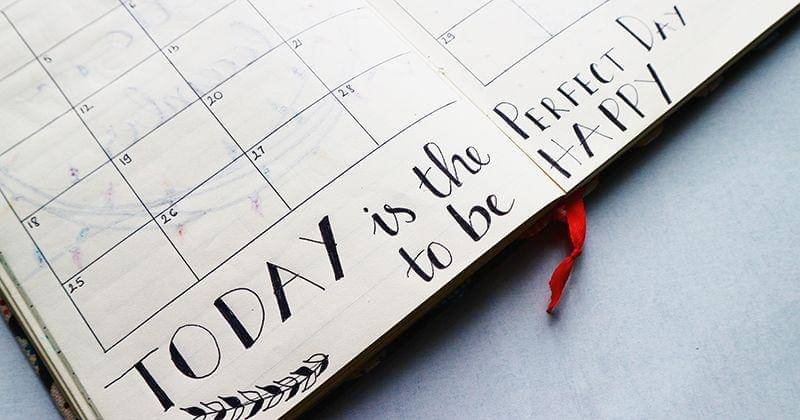 5 6
12 13
18 19 20 21
25 26 27 28 29
TODAY is the PERFECT DAY
to be HAPPY